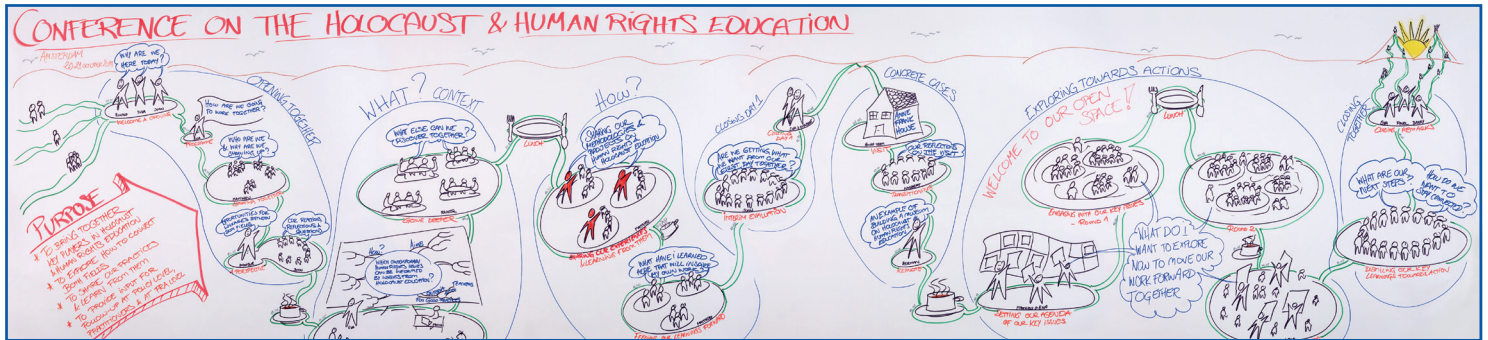 CONFERENCE ON THE HOLOCAUST & HUMAN RIGHTS EDUCATION
AMSTERDAM
WHY ARE WE
HERE TODAY?
WELCOME & OPENING
HOW ARE WE GOING
TO WORK TOGETHER?
PROGRAMME
OPENING TOGETHER
WHO ARE WE
& WHY ARE WE
SHOWING UP?
OPPORTUNITIES FOR
SYNERGIES BETWEEN
BOTH FIELDS
OUR
REFLECTIONS &
QUESTIONS
PURPOSE
* TO BRING TOGETHER
KEY PLAYERS IN HOLOCAUST
HUMAN RIGHTS EDUCATION
* TO EXPLORE HOW TO CONNECT
BOTH FIELDS
* TO SHARE OUR PRACTICES
& LEARN FROM THEM
* TO PROVIDE INPUT FOR
FOLLOW-UP AT POLICY LEVEL,
PRACTITIONERS & AT FRA LEVEL
WHAT? CONTEXT
WHAT ELSE CAN WE
DISCOVER TOGETHER?
GOING DEEPER
HOLOCAUST EDUCATION?
LUNCH
HOW?
SHARING OUR
METHODOLOGIES &
APPROACHES ON
HUMAN RIGHTS &
HOLOCAUST EDUCATION
SHARING OUR EXPERIENCES
& LEARNING FROM THEM
WHAT HAVE I LEARNED
HERE THAT WILL INSPIRE
MY OWN WORK?
FEEDING OUR LEARNINGS FORWARD
CLOSING DAY 1
ARE WE GETTING WHAT
WE WANT FROM OUR
FIRST DAY TOGETHER?
INTERIM EVALUATION
CLOSING
DAY 1
CONCRETE CASES
ANNE
FRANK
HOUSE
VISIT
OUR REFLECTIONS
ON THE VISIT
AN EXAMPLE OF
BUILDING A MUSEUM
ON HOLOCAUST &
HUMAN RIGHTS
EDUCATION
EXPLORING TOWARDS ACTIONS
WELCOME TO OUR OPEN
SPACE!
LUNCH
ENGAGE INTO OUR KEY ISSUES
- ROUND 1
ROUND 2
WHAT DO I
WANT TO EXPLORE
NOW TO MOVE OUR
WORK FORWARD
TOGETHER
SETTING OUR AGENDA
OF OUR KEY ISSUES
CLOSING
TOGETHER
CLOSING REMARKS
WHAT ARE OUR
NEXT STEPS?
HOW DO WE
WANT TO
STAY CONNECTED?
DISTILLING OUR KEY
LEARNINGS TOWARDS ACTION